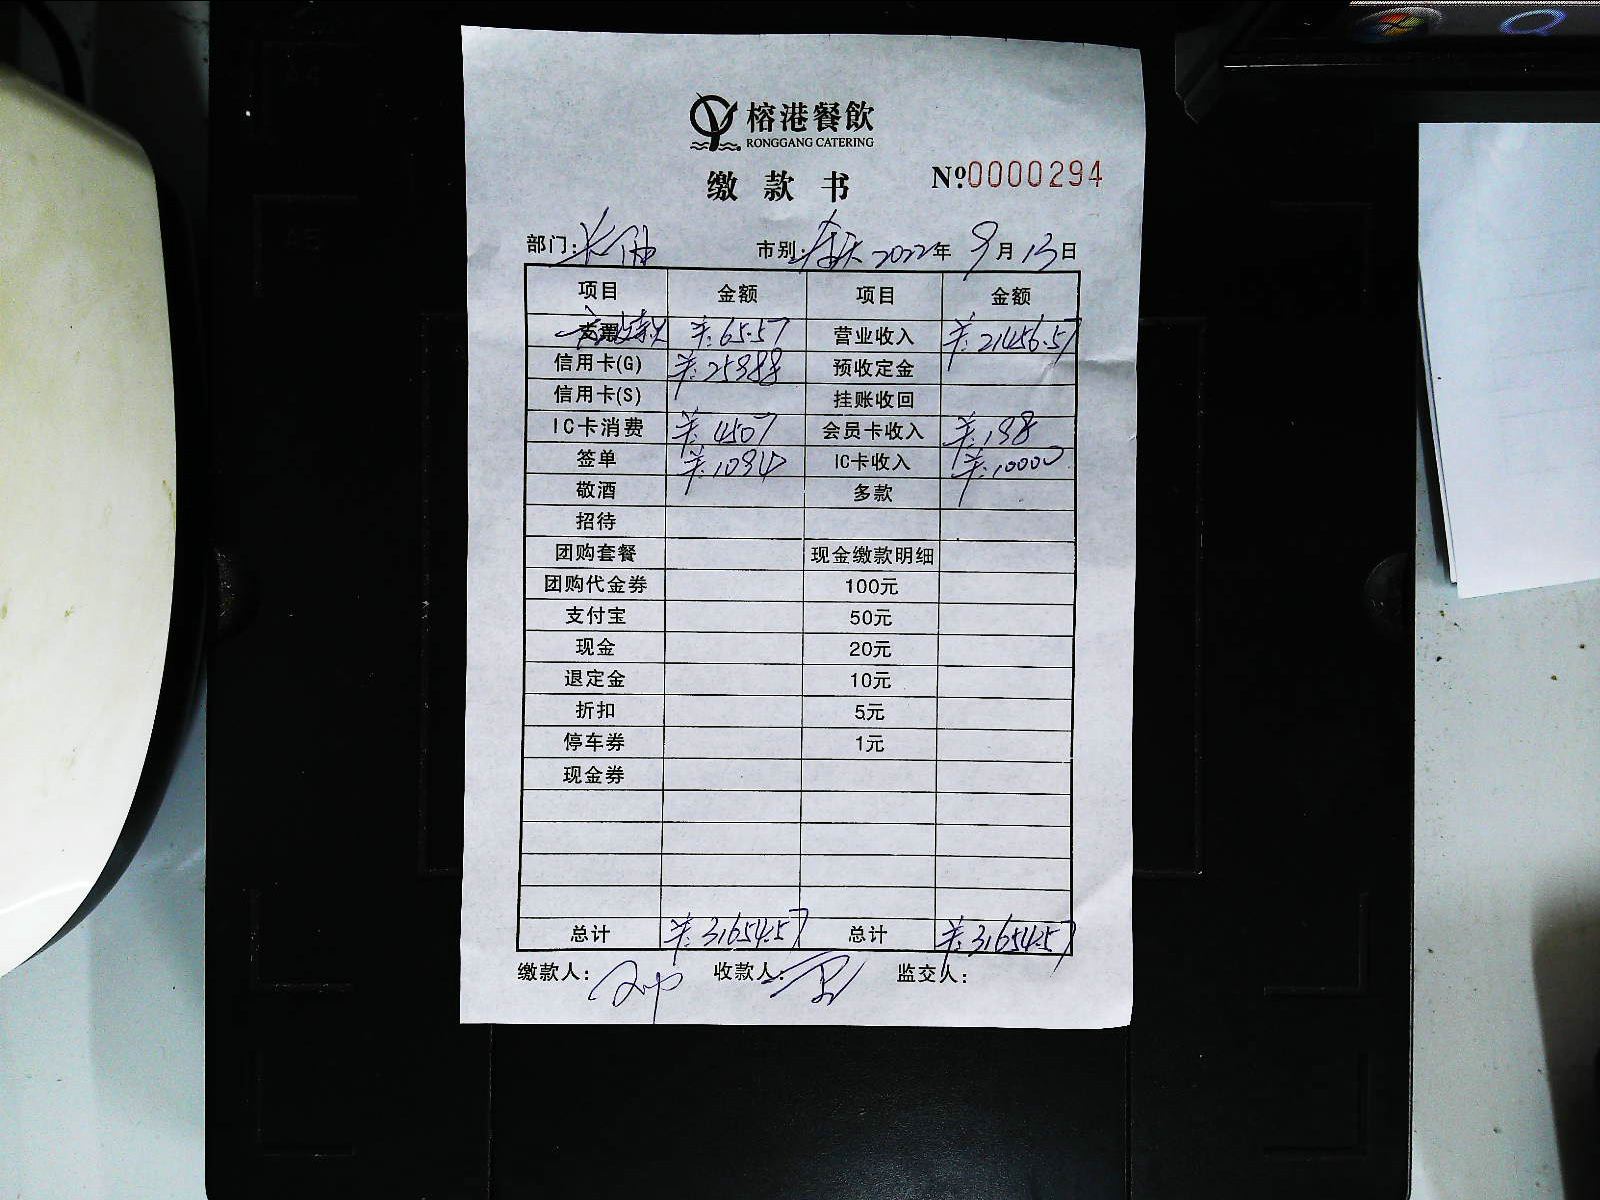 榕港餐飲
RONGGANG CATERING
缴款书 Nº0000294
部门: 市别: 2022年 9月13日
项目 金额 项目 金额
¥:65.57 营业收入 ¥:21456.57
信用卡(G) ¥:25988 预收定金
信用卡(S) 挂账收回
IC卡消费 ¥:4507 会员卡收入 ¥:198
签单 ¥:1094 IC卡收入 ¥:10000
敬酒 多款
招待
团购套餐 现金缴款明细
团购代金券 100元
支付宝 50元
现金 20元
退定金 10元
折扣 5元
停车券 1元
现金券
总计 ¥:31654.57 总计 ¥:31654.57
缴款人: 收款人: 监交人: